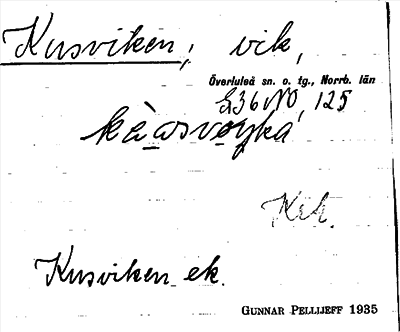 Kusviken, vik,
Överluleå sn. o. tg., Norrb. län
E36NO, 125
Kusviken ek.
GUNNAR PELLIJEFF 1935